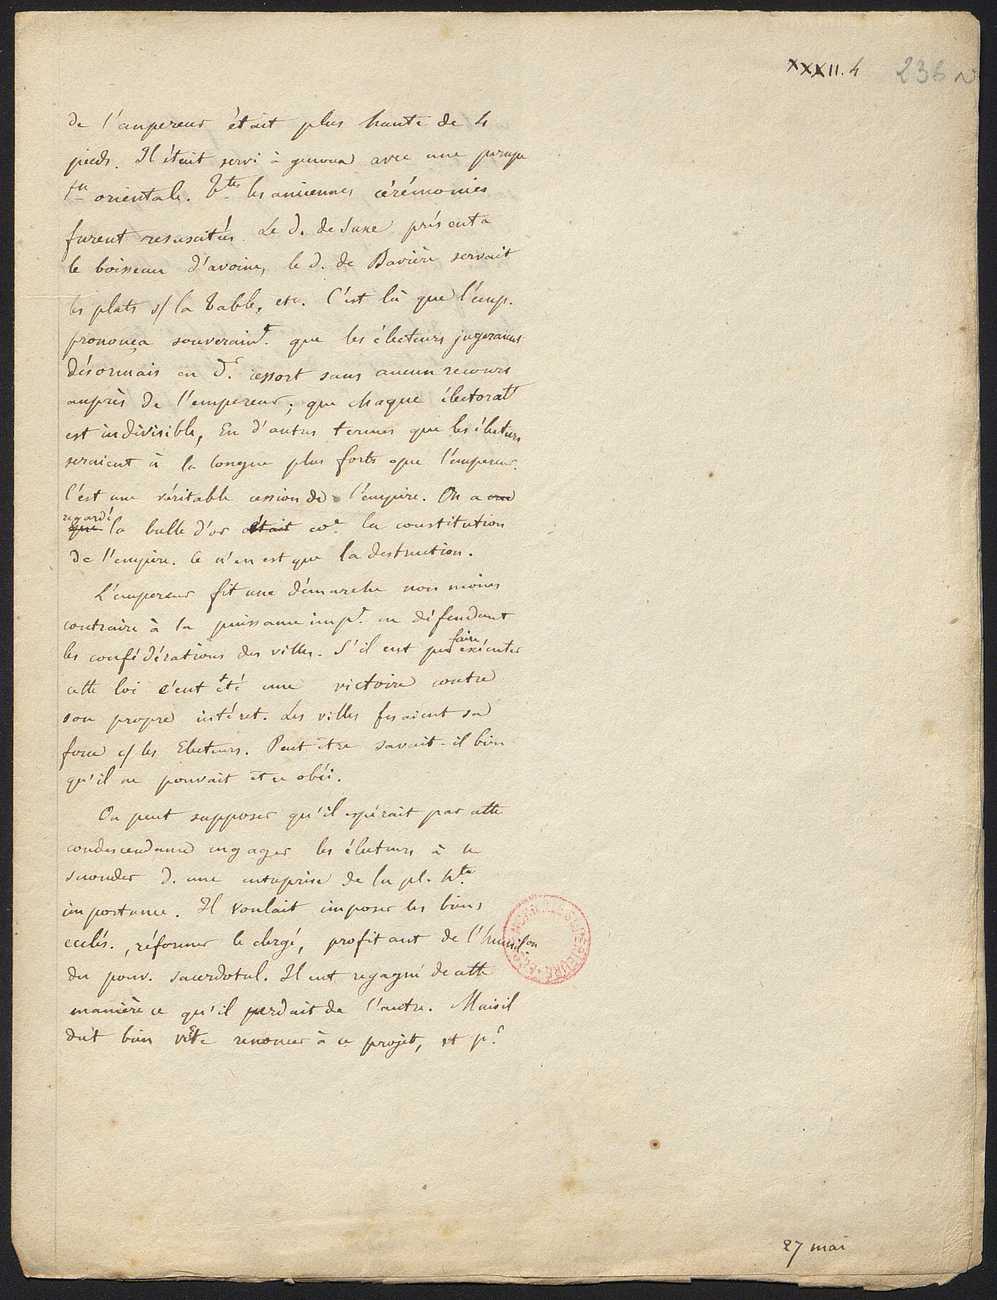 XXXII. 4
236
de l'empereur était plus haute de 4
pieds. Il était servi à genoux avec une pompe
orientale. Ttes les anciennes cérémonies
furent resuscitées. Le d. de Saxe présenta
le boisseau d'avoine, le d. de Bavière servait
les plats s/ la table, etc. C'est là que l'emp.
prononça souveraint. que les électeurs jugeraient
désormais en dr. ressort sans aucun recours
auprès de l'empereur; que chaque électorat
est indivisible, En d'autres termes que les électeurs
seraient à la longue plus forts que l'empereur.
C'est une véritable cession de l'empire. On a
regardé
que la bulle d'or était coe la constitution
de l'empire. Ce n'en est que la destruction.
L'empereur fit une démarche non moins
contraire à la puissance impt. en défendant
les confédérations des villes. S'il eut pu faire exécuter
cette loi c'eut été une victoire contre
son propre intéret. Les villes fesaient sa
force c/ les Electeurs. Peut être savait-il bien
qu'il ne pouvait etre obéi.
On peut supposer qu'il espérait par cette
condescendance engager les électeurs à le
seconder d. une entreprise de la pl. hte
importance. Il voulait imposer les biens
ecclés., réformer le clergé, profitant de l'humilon
du pouv. sacerdotal. Il eut regagné de cette
manière ce qu'il perdait de l'autre. Mais il
dut bien vite renoncer à ce projet, et pr
ECOLE NORMALE SUPERIEURE
27 mai